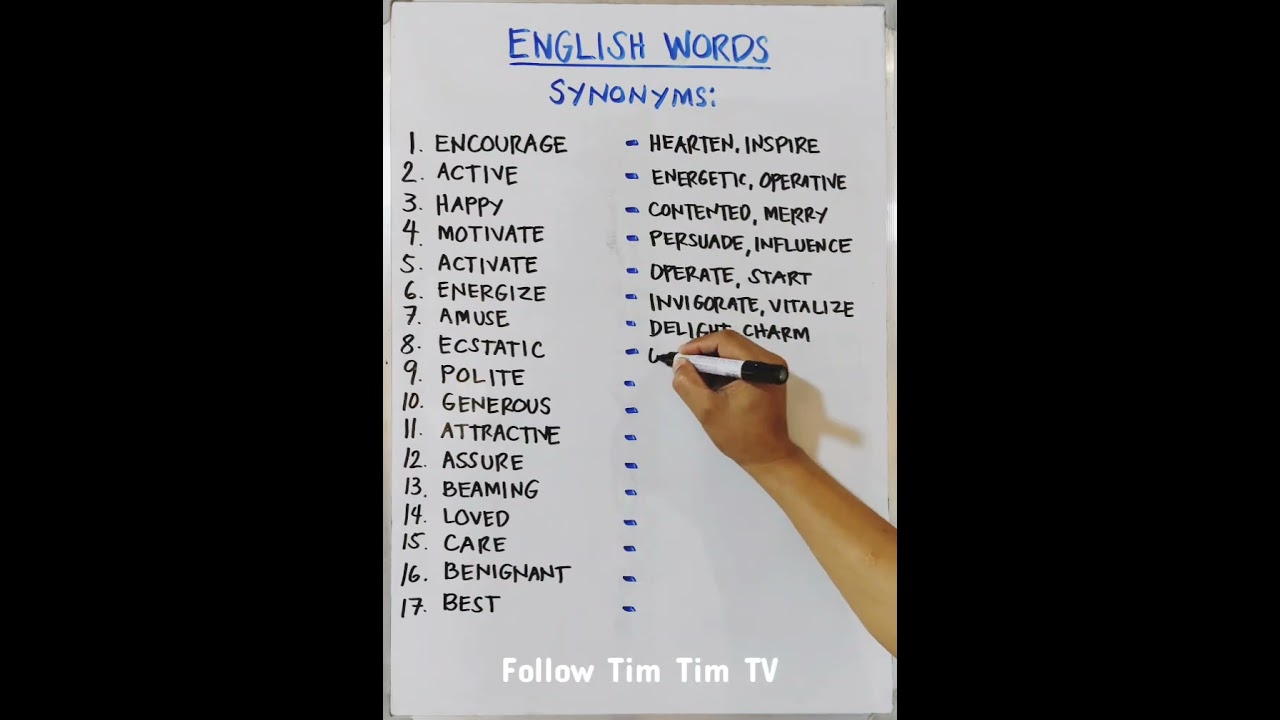 ENGLISH WORDS
SYNONYMS:
1. ENCOURAGE - HEARTEN, INSPIRE
2. ACTIVE - ENERGETIC, OPERATIVE
3. HAPPY - CONTENTED, MERRY
4. MOTIVATE - PERSUADE, INFLUENCE
5. ACTIVATE - OPERATE, START
6. ENERGIZE - INVIGORATE, VITALIZE
7. AMUSE - DELIGHT, CHARM
8. ECSTATIC -
9. POLITE -
10. GENEROUS -
11. ATTRACTIVE -
12. ASSURE -
13. BEAMING -
14. LOVED -
15. CARE -
16. BENIGNANT -
17. BEST -
Follow Tim Tim TV